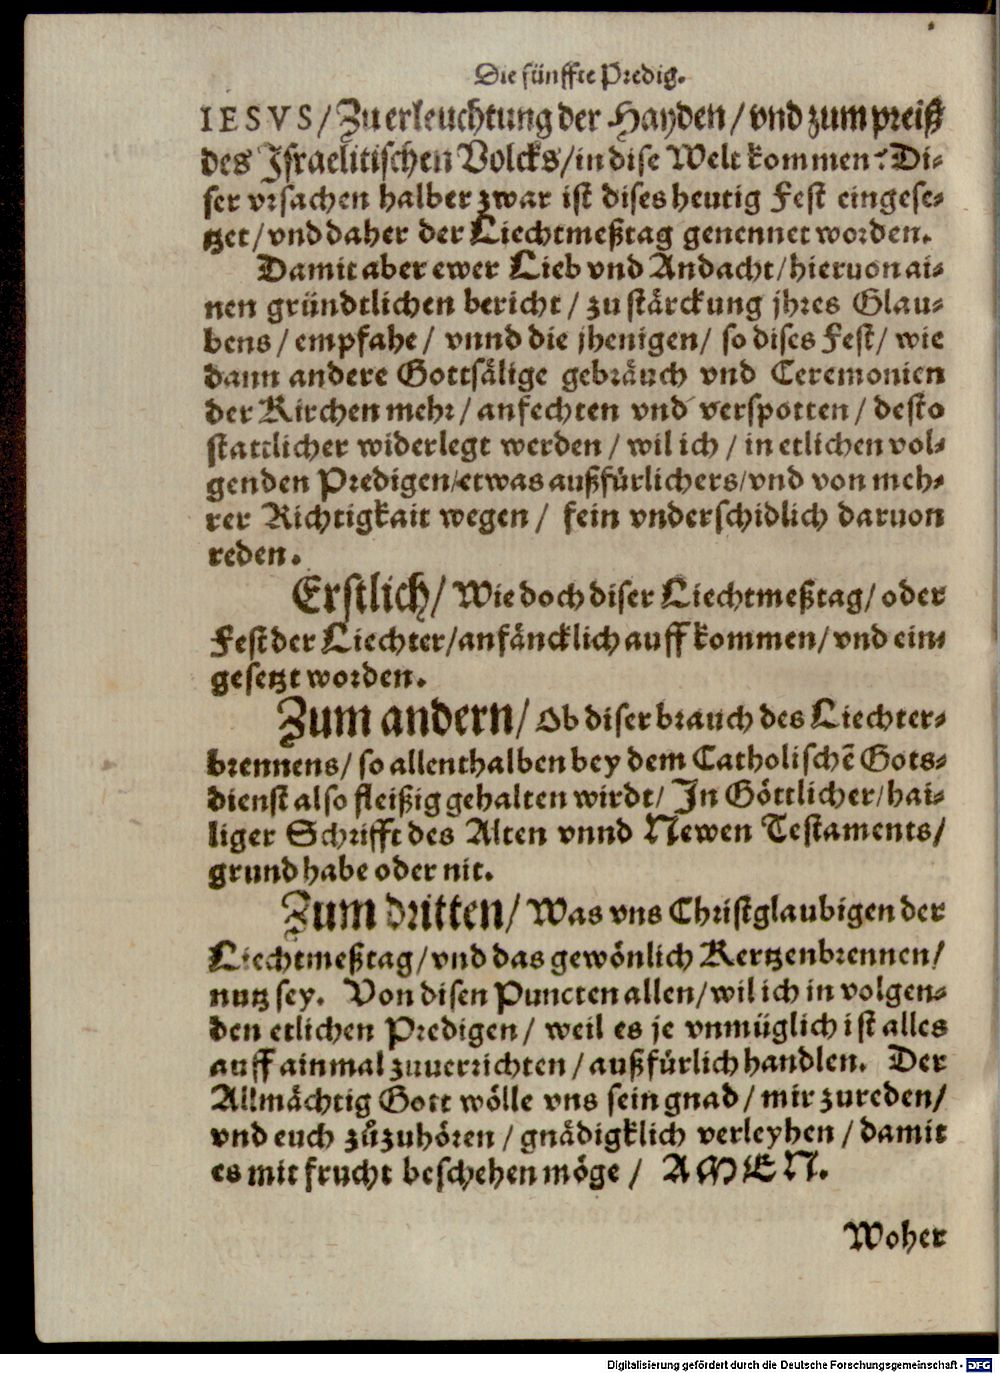 Die fünffte Predig.
IESVS/ Zu erleuchtung der Hayden/ vnd zum preiß
des Israelitischen Volcks/ in dise Welt kommen? Di-
ser vrsachen halber zwar ist dises heutig Fest eingese-
tzet/ vnd daher der Liechtmeßtag genennet worden.
Damit aber ewer Lieb vnd Andacht/ hieruon ai-
nen gründtlichen bericht/ zu stärckung jhres Glau-
bens/ empfahe/ vnnd die jhenigen/ so dises Fest/ wie
dann andere Gottsälige gebräuch vnd Ceremonien
der Kirchen mehr/ anfechten vnd verspotten/ desto
stattlicher widerlegt werden/ wil ich/ in etlichen vol-
genden Predigen/ etwas außfürlichers/ vnd von meh-
rer Richtigkait wegen/ fein vnderschidlich daruon
reden.
Erstlich/ Wie doch diser Liechtmeßtag/ oder
Fest der Liechter/ anfäncklich auff kommen/ vnd ein-
gesetzt worden.
Zum andern/ Ob diser brauch des Liechter-
brennens/ so allenthalben bey dem Catholischẽ Gots-
dienst also fleißig gehalten wirdt/ In Göttlicher/ hai-
liger Schrifft des Alten vnnd Newen Testaments/
grund habe oder nit.
Zum dritten/ Was vns Christglaubigen der
Liechtmeßtag/ vnd das gewönlich Kertzenbrennen/
nutz sey. Von disen Puncten allen/ wil ich in volgen-
den etlichen Predigen/ weil es je vnmüglich ist alles
auff ainmal zuuerrichten/ außfürlich handlen. Der
Allmächtig Gott wölle vns sein gnad/ mir zureden/
vnd euch zůzuhören/ gnädigklich verleyhen/ damit
es mit frucht beschehen möge/ AMEN.
Woher
Digitalisierung gefördert durch die Deutsche Forschungsgemeinschaft - DFG